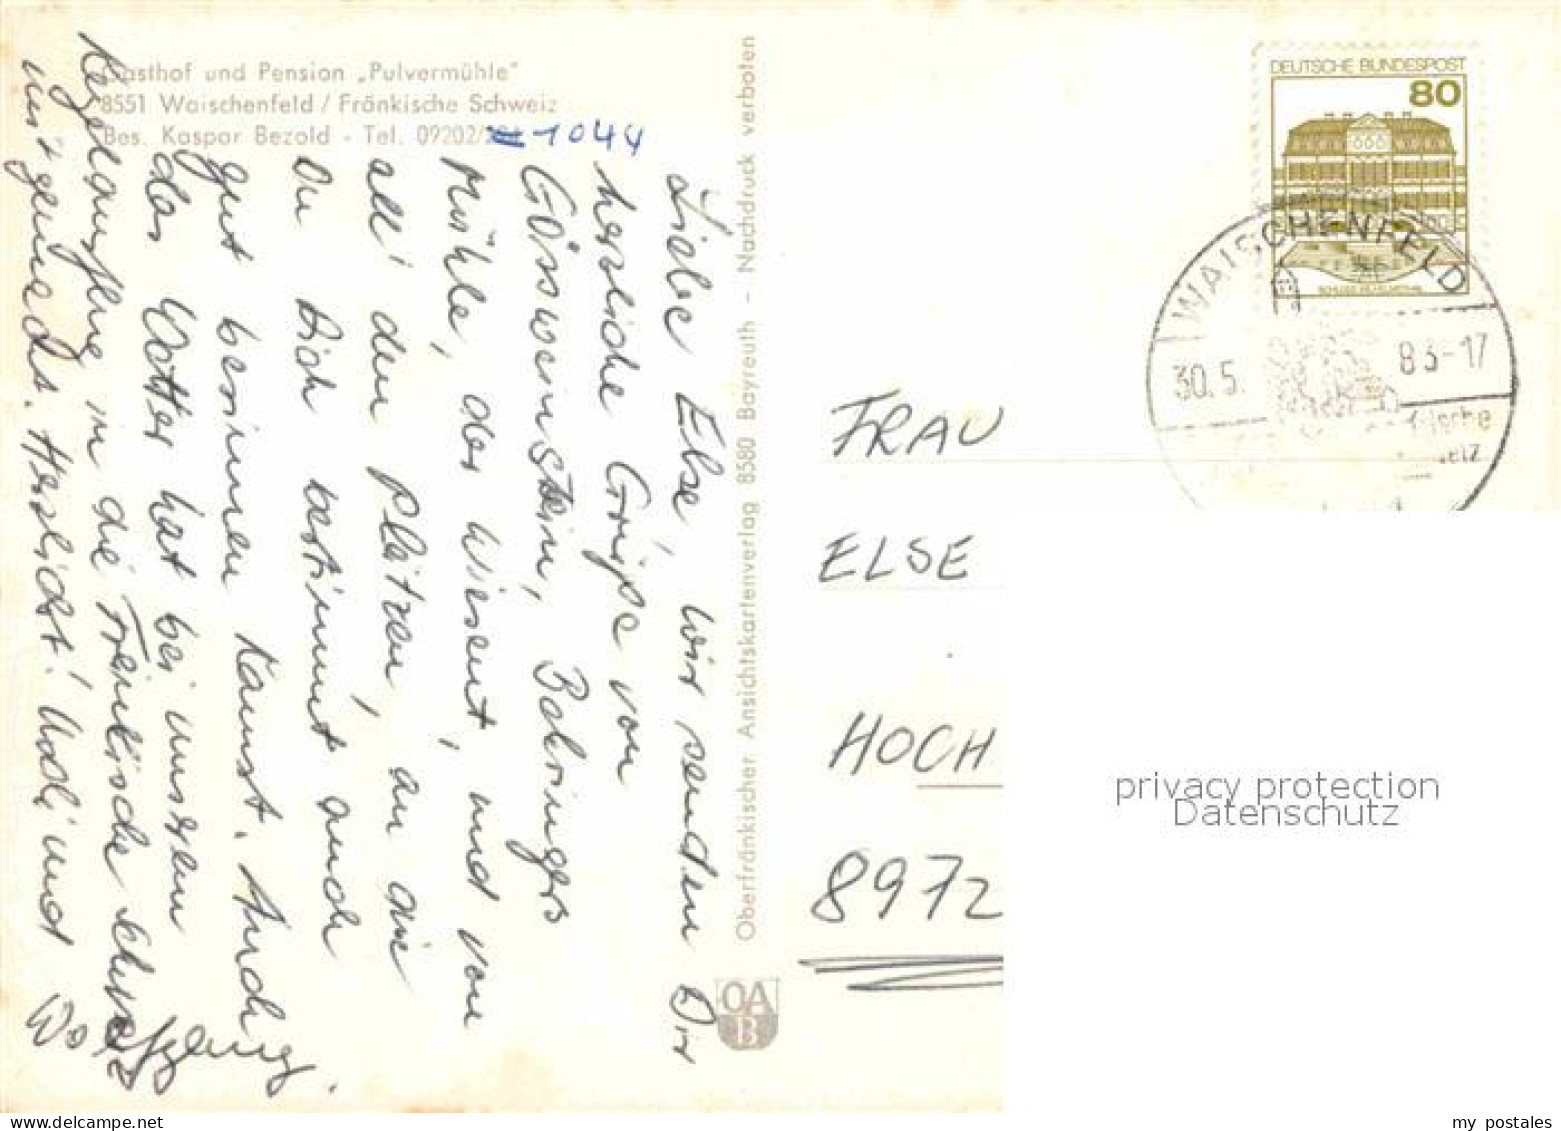 Gasthof und Pension „Pulvermühle"
8551 Waischenfeld / Fränkische Schweiz
Bes. Kaspar Bezold - Tel. 09202/ 1044
Liebe Else, wir senden Dir
herzliche Grüße von
Gössweinstein, Behringers
Mühle, der Wiesent, und von
all' den Plätzen, an die
Du Dich bestimmt auch
gut besinnen kannst. Auch
das Wetter hat bei unserem
Kegelausflug in die Fränkische Schweiz
mitgemacht. Herzlichst! Uschi und
Wolfgang.
Oberfränkischer Ansichtskartenverlag 8580 Bayreuth - Nachdruck verboten
OA
B
DEUTSCHE BUNDESPOST
80
WAISCHENFELD
30.5. 83-17
FRAU
ELSE
HOCH
8972
privacy protection
Datenschutz
my postales